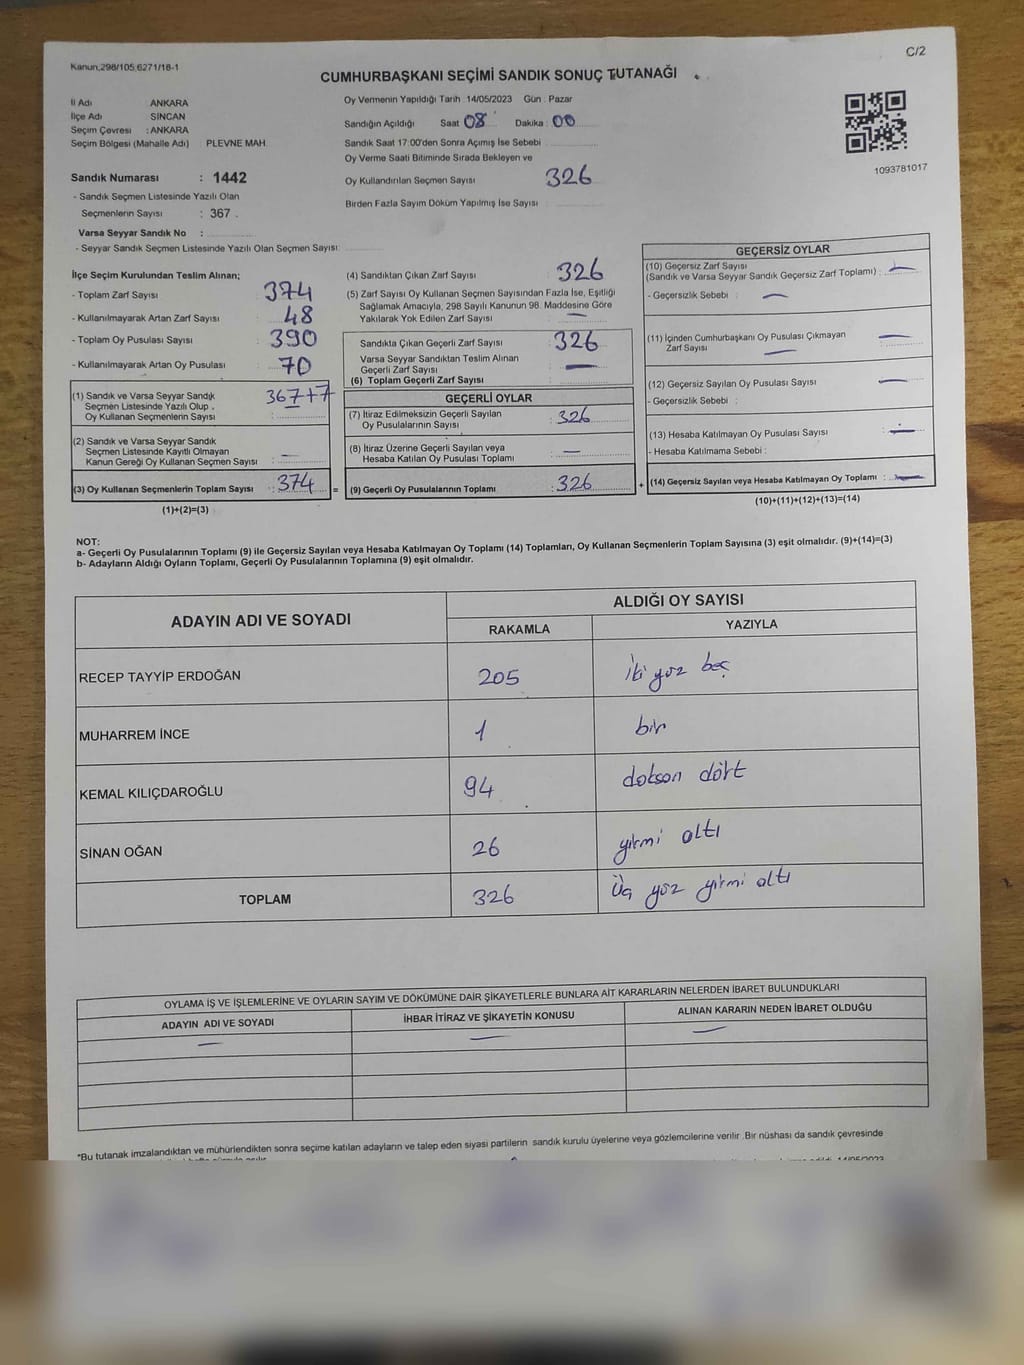 C/2
Kanun,298/105,6271/18-1
CUMHURBAŞKANI SEÇİMİ SANDIK SONUÇ TUTANAĞI
İl Adı ANKARA
İlçe Adı SİNCAN
Seçim Çevresi : ANKARA
Seçim Bölgesi (Mahalle Adı) PLEVNE MAH.
Sandık Numarası : 1442
- Sandık Seçmen Listesinde Yazılı Olan
Seçmenlerin Sayısı : 367
Varsa Seyyar Sandık No :
- Seyyar Sandık Seçmen Listesinde Yazılı Olan Seçmen Sayısı:
Oy Vermenin Yapıldığı Tarih 14/05/2023 Gün : Pazar
Sandığın Açıldığı Saat 08 Dakika : 00
Sandık Saat 17:00'den Sonra Açımış İse Sebebi
Oy Verme Saati Bitiminde Sırada Bekleyen ve
Oy Kullandırılan Seçmen Sayısı 326
Birden Fazla Sayım Döküm Yapılmış İse Sayısı :
1093781017
İlçe Seçim Kurulundan Teslim Alınan;
- Toplam Zarf Sayısı : 374
- Kullanılmayarak Artan Zarf Sayısı : 48
- Toplam Oy Pusulası Sayısı : 390
- Kullanılmayarak Artan Oy Pusulası : 70
(1) Sandık ve Varsa Seyyar Sandık
Seçmen Listesinde Yazılı Olup ,
Oy Kullanan Seçmenlerin Sayısı : 367+7
(2) Sandık ve Varsa Seyyar Sandık
Seçmen Listesinde Kayıtlı Olmayan
Kanun Gereği Oy Kullanan Seçmen Sayısı : —
(3) Oy Kullanan Seçmenlerin Toplam Sayısı : 374 =
(1)+(2)=(3)
(4) Sandıktan Çıkan Zarf Sayısı : 326
(5) Zarf Sayısı Oy Kullanan Seçmen Sayısından Fazla İse, Eşitliği
Sağlamak Amacıyla, 298 Sayılı Kanunun 98. Maddesine Göre
Yakılarak Yok Edilen Zarf Sayısı : —
Sandıkta Çıkan Geçerli Zarf Sayısı : 326
Varsa Seyyar Sandıktan Teslim Alınan
Geçerli Zarf Sayısı : —
(6) Toplam Geçerli Zarf Sayısı :
GEÇERLİ OYLAR
(7) İtiraz Edilmeksizin Geçerli Sayılan
Oy Pusulalarının Sayısı : 326
(8) İtiraz Üzerine Geçerli Sayılan veya
Hesaba Katılan Oy Pusulası Toplamı : —
(9) Geçerli Oy Pusulalarının Toplamı : 326 +
GEÇERSİZ OYLAR
(10) Geçersiz Zarf Sayısı
(Sandık ve Varsa Seyyar Sandık Geçersiz Zarf Toplamı) : —
- Geçersizlik Sebebi : —
(11) İçinden Cumhurbaşkanı Oy Pusulası Çıkmayan
Zarf Sayısı —
(12) Geçersiz Sayılan Oy Pusulası Sayısı : —
- Geçersizlik Sebebi :
(13) Hesaba Katılmayan Oy Pusulası Sayısı : —
- Hesaba Katılmama Sebebi :
(14) Geçersiz Sayılan veya Hesaba Katılmayan Oy Toplamı : —
(10)+(11)+(12)+(13)=(14)
NOT:
a- Geçerli Oy Pusulalarının Toplamı (9) ile Geçersiz Sayılan veya Hesaba Katılmayan Oy Toplamı (14) Toplamları, Oy Kullanan Seçmenlerin Toplam Sayısına (3) eşit olmalıdır. (9)+(14)=(3)
b- Adayların Aldığı Oyların Toplamı, Geçerli Oy Pusulalarının Toplamına (9) eşit olmalıdır.
ADAYIN ADI VE SOYADI ALDIĞI OY SAYISI
RAKAMLA YAZIYLA
RECEP TAYYİP ERDOĞAN 205 iki yüz beş
MUHARREM İNCE 1 bir
KEMAL KILIÇDAROĞLU 94 doksan dört
SİNAN OĞAN 26 yirmi altı
TOPLAM 326 Üç yüz yirmi altı
OYLAMA İŞ VE İŞLEMLERİNE VE OYLARIN SAYIM VE DÖKÜMÜNE DAİR ŞİKAYETLERLE BUNLARA AİT KARARLARIN NELERDEN İBARET BULUNDUKLARI
ADAYIN ADI VE SOYADI İHBAR İTİRAZ VE ŞİKAYETİN KONUSU ALINAN KARARIN NEDEN İBARET OLDUĞU
— — —
*Bu tutanak imzalandıktan ve mühürlendikten sonra seçime katılan adayların ve talep eden siyasi partilerin sandık kurulu üyelerine veya gözlemcilerine verilir .Bir nüshası da sandık çevresinde